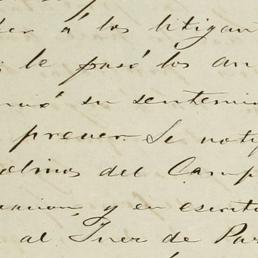 á los litigan
le pasó los au
su sentenci
prever. Se notif
olinos del Camp
y en escrito
al Juez de Pa